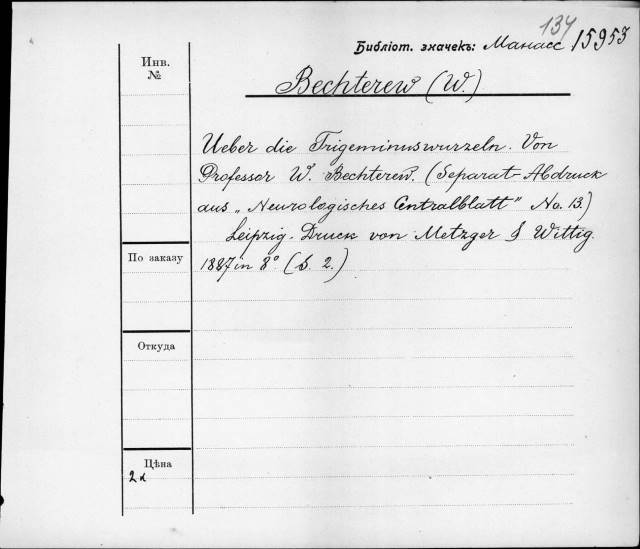 134
Библіот. значекъ: Манасс 15953
Инв.
№
Bechterew (W.)
Ueber die Trigeminuswurzeln. Von
Professor W. Bechterew. (Separat-Abdruck
aus „Neurologisches Centralblatt" No. 13.)
Leipzig. Druck von Metzger & Wittig.
По заказу
1887 in 8° (S. 2.)
Откуда
Цѣна